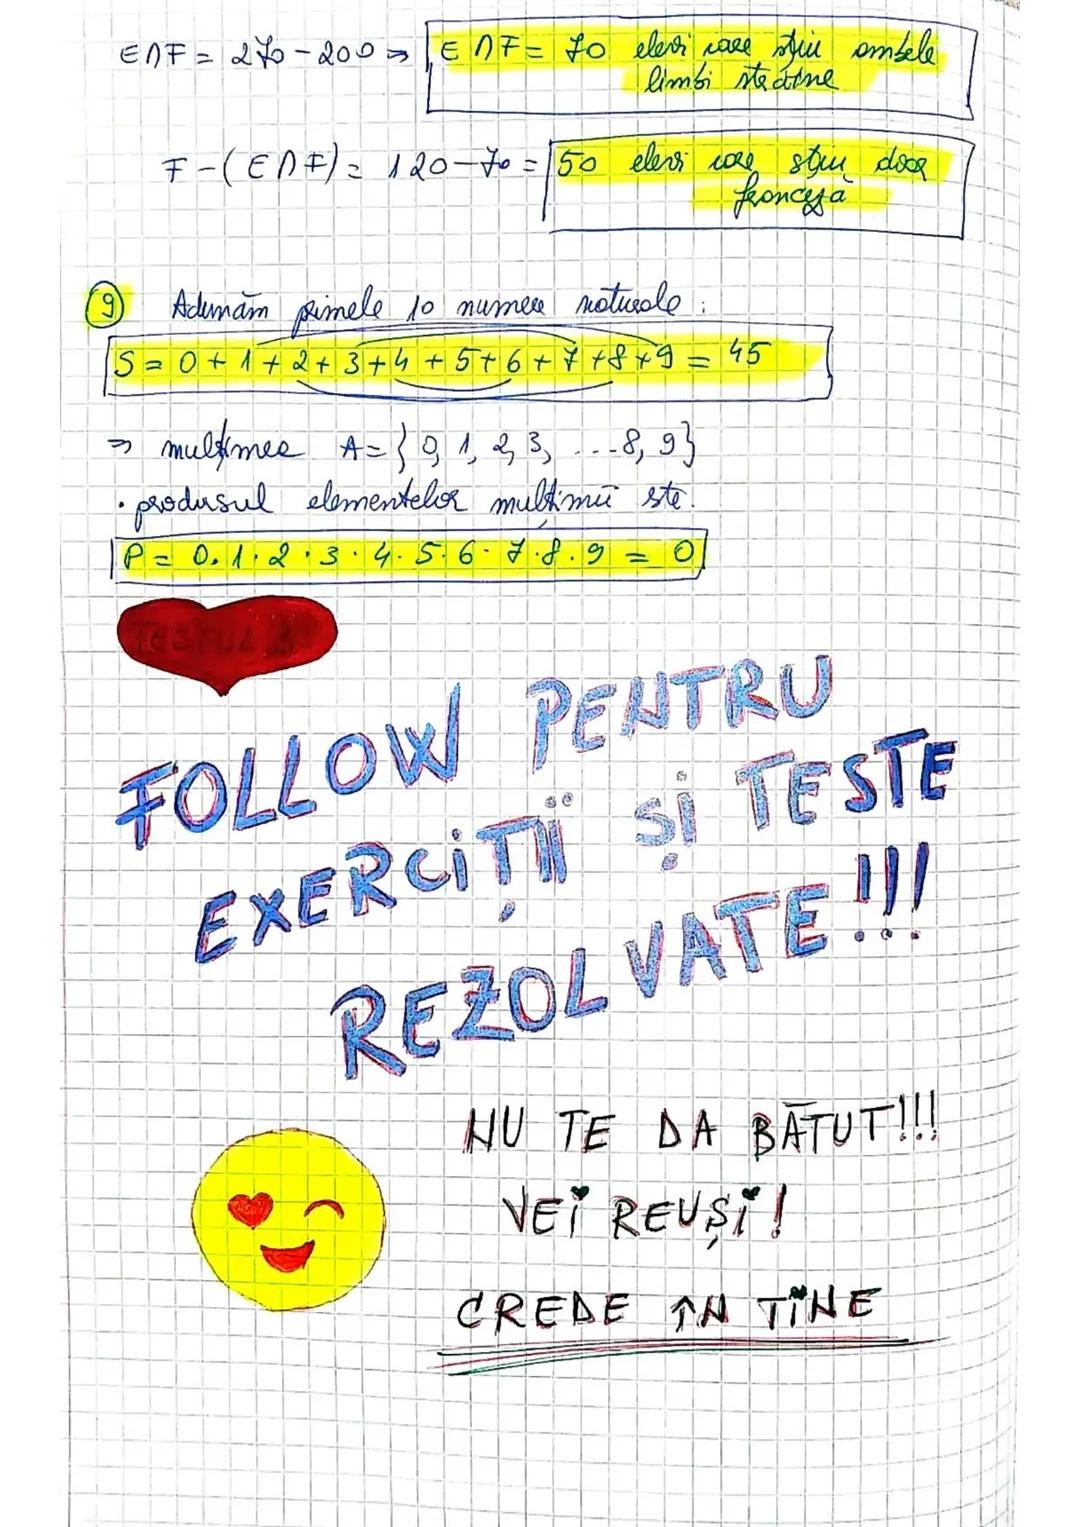 E∩F = 270 - 200 ⇒ E∩F = 70 elevi care știu ambele
limbi străine
F - (E∩F) = 120 - 70 = 50 elevi care știu doar
franceză
9 Adunăm primele 10 numere naturale:
S = 0 + 1 + 2 + 3 + 4 + 5 + 6 + 7 + 8 + 9 = 45
⇒ mulțimea A = {0, 1, 2, 3, ...8, 9}
· produsul elementelor mulțimii este.
P = 0.1.2.3.4.5.6.7.8.9 = 0
TESTUL
FOLLOW PENTRU
EXERCIȚII ȘI TESTE
REZOLVATE!!!
NU TE DA BĂTUT!!!
VEI REUȘI!
CREDE ÎN TINE